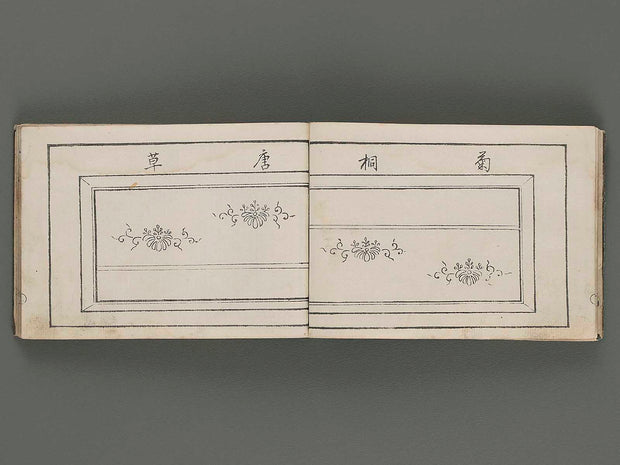 菊桐唐草